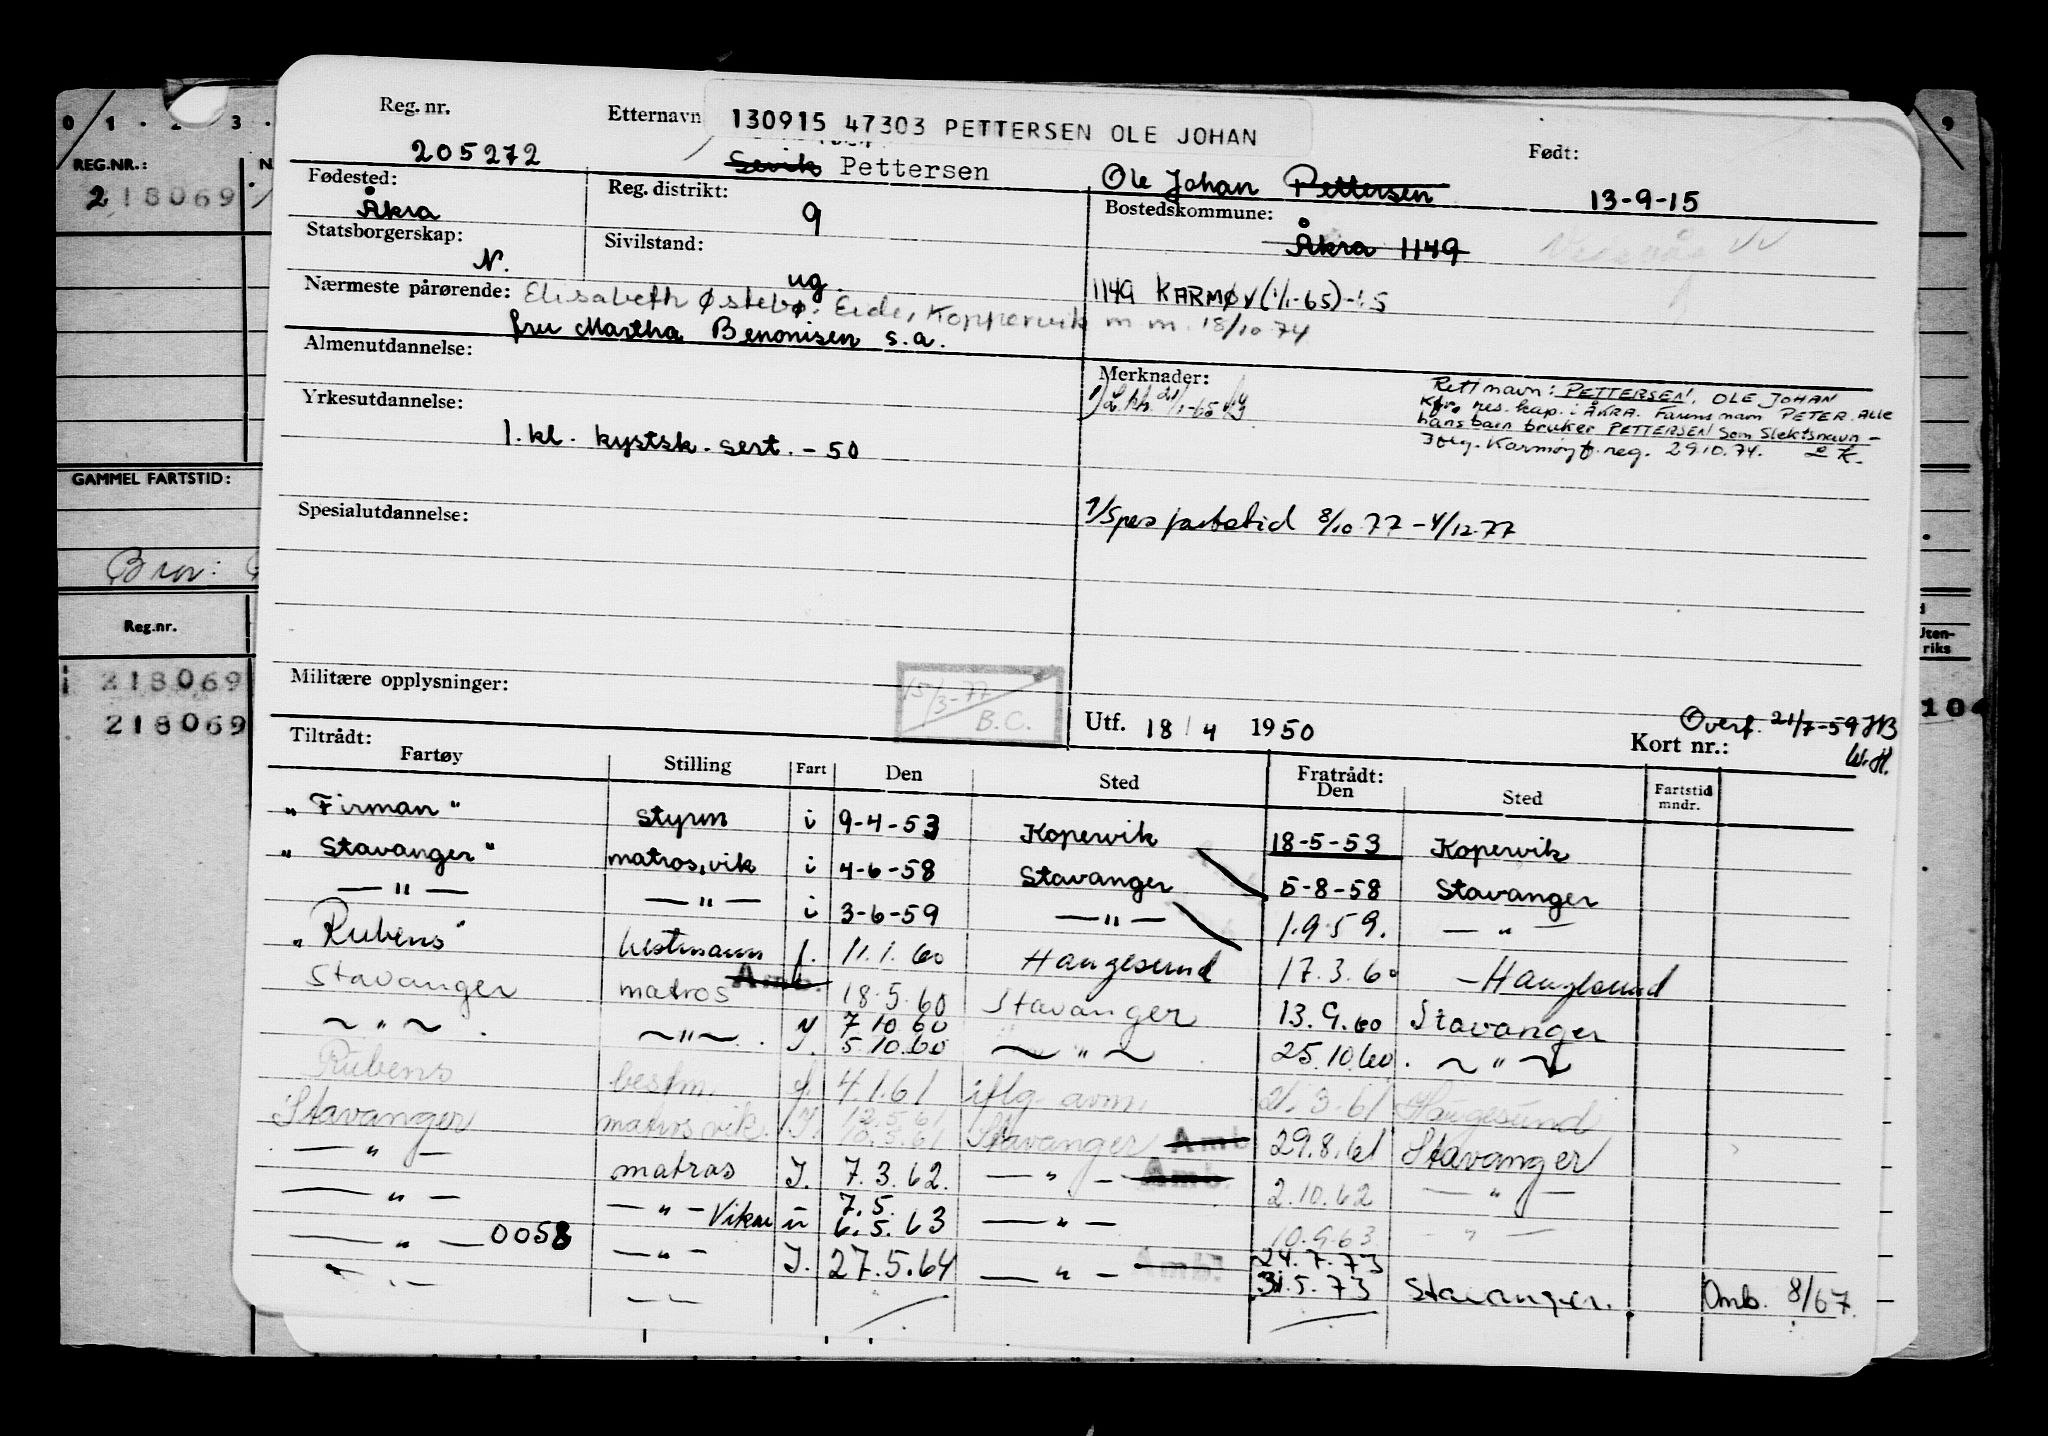 Reg. nr. Etternavn 130915 47303 PETTERSEN OLE JOHAN Født:
205272 Sevik Pettersen Ole Johan Pettersen 13-9-15
Fødested: Reg. distrikt: Bostedskommune:
Åkra 9 Åkra 1149
Statsborgerskap: Sivilstand:
N. ug. 1149 KARMØY (1/1-65)
Nærmeste pårørende: Elisabeth Østebø, Eide, Koppervik m m. 18/10.74
fru Martha Benonisen s.a.
Almenutdannelse: Merknader:
Rett navn: PETTERSEN, OLE JOHAN
res. kap. i ÅKRA. Farens navn PETER. Alle
hans barn bruker PETTERSEN som slektsnavn -
Karmøy f. reg. 29.10.74.
Yrkesutdannelse:
1. kl. kystsk. sert. - 50
Spesialutdannelse:
1/Spes fartstid 8/10.77 - 4/12.77
Militære opplysninger: 15/3-77 B.C. Utf. 18/4 1950 Overf. 21/7-59 HB
Kort nr.: W.H.
Tiltrådt: Fratrådt:
Fartøy Stilling Fart Den Sted Den Sted Fartstid mndr.
"Firman" styrm i 9-4-53 Kopervik 18-5-53 Kopervik
"Stavanger" matros, vik i 4-6-58 Stavanger 5-8-58 Stavanger
— " — — " — i 3-6-59 — " — 1.9.59. — " —
"Rubens" bestmann f. 11.1.60 Haugesund 17.3.60 Haugesund
Stavanger matros Amb. 18.5.60 Stavanger 13.9.60 Stavanger
~ " ~ ~ " ~ J. 7.10.60 5.10.60 ~ " ~ 25.10.60. ~ " ~
Rubens bestm. f. 4.1.61 iflg. avm. 21.3.61 Haugesund
Stavanger matros vik. J. 12.5.61 10.5.61 Stavanger Amb 29.8.61 Stavanger
— " — matros J. 7.3.62. — " — Amb. 2.10.62 — " —
— " — — " — Vikar i 7.5. 6.5.63 — " — 10.9.63 — " —
— " — 0058 — " — J. 27.5.64 — " — Amb. 24.7.73
31.5.73 Stavanger. Omb. 8/67.
REG.NR.:
218069
GAMMEL FARTSTID:
Bror:
Reg.nr.
218069
218069
Uten-
riks
104